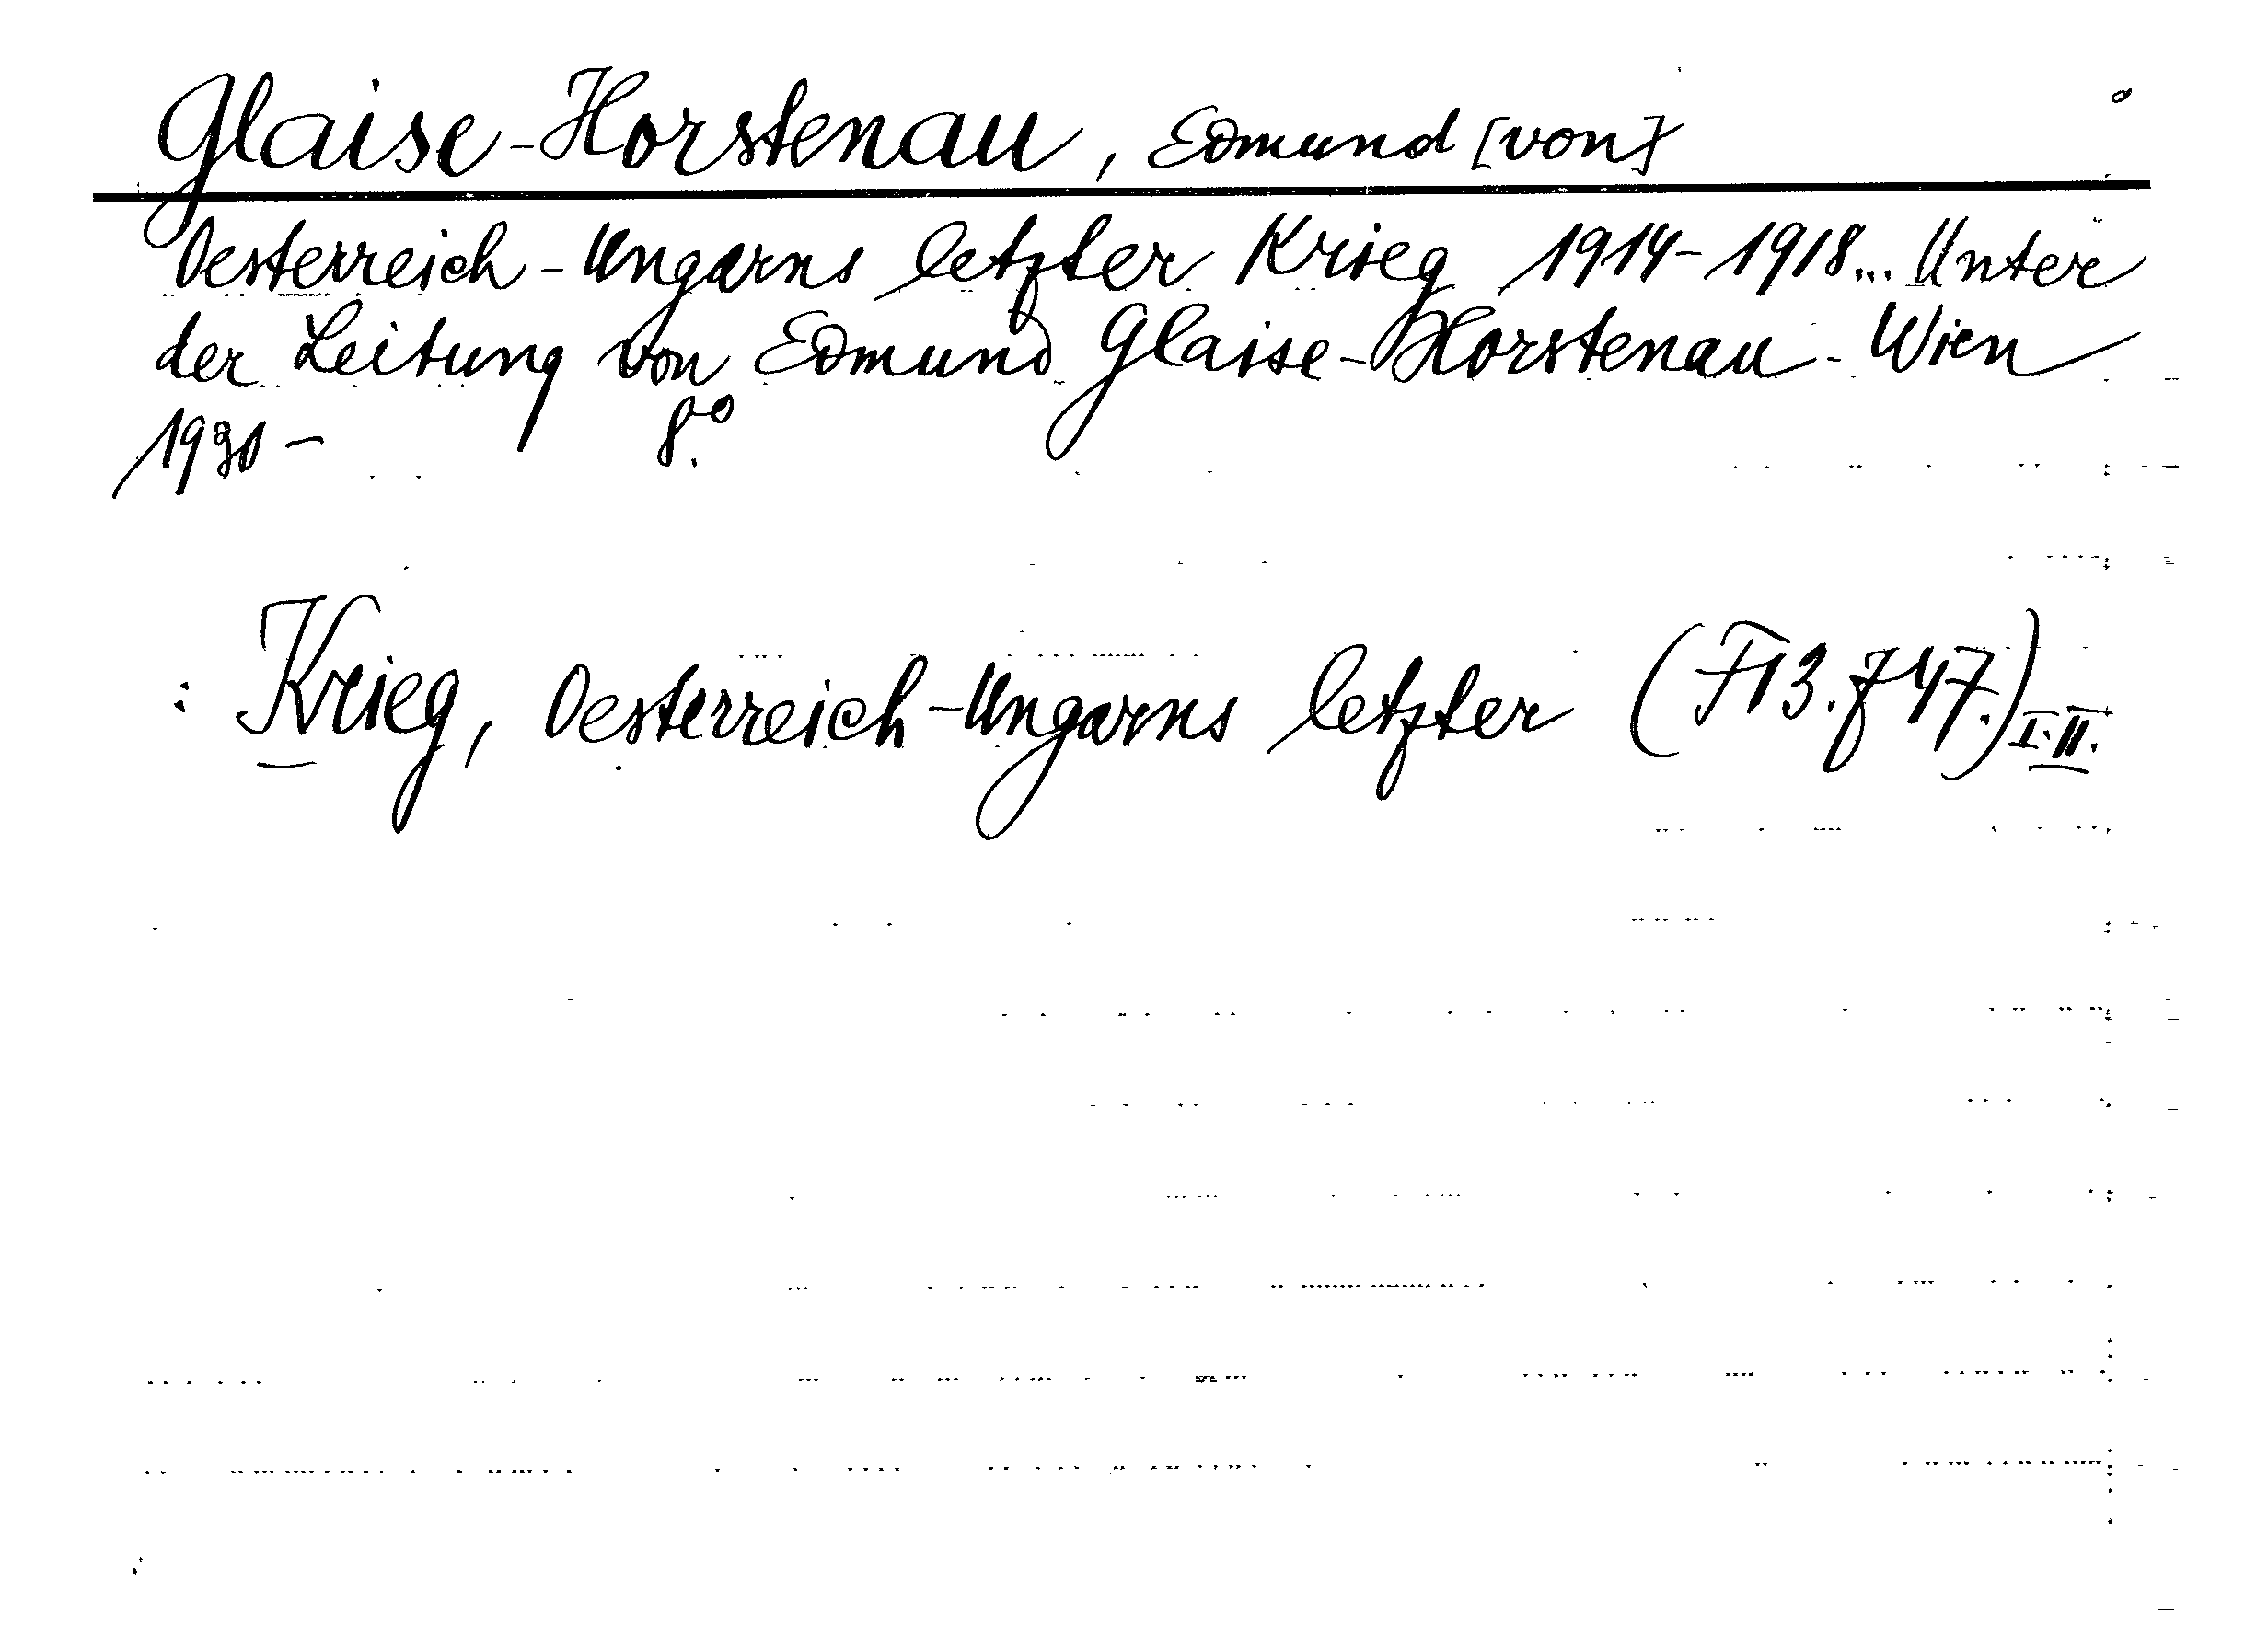 Glaise-Horstenau, Edmund [von]
Oesterreich-Ungarns letzter Krieg 1914-1918... Unter
der Leitung von Edmund Glaise-Horstenau - Wien
1930 - 8°.
: Krieg, Oesterreich-Ungarns letzter (F13.f47.) I.II.